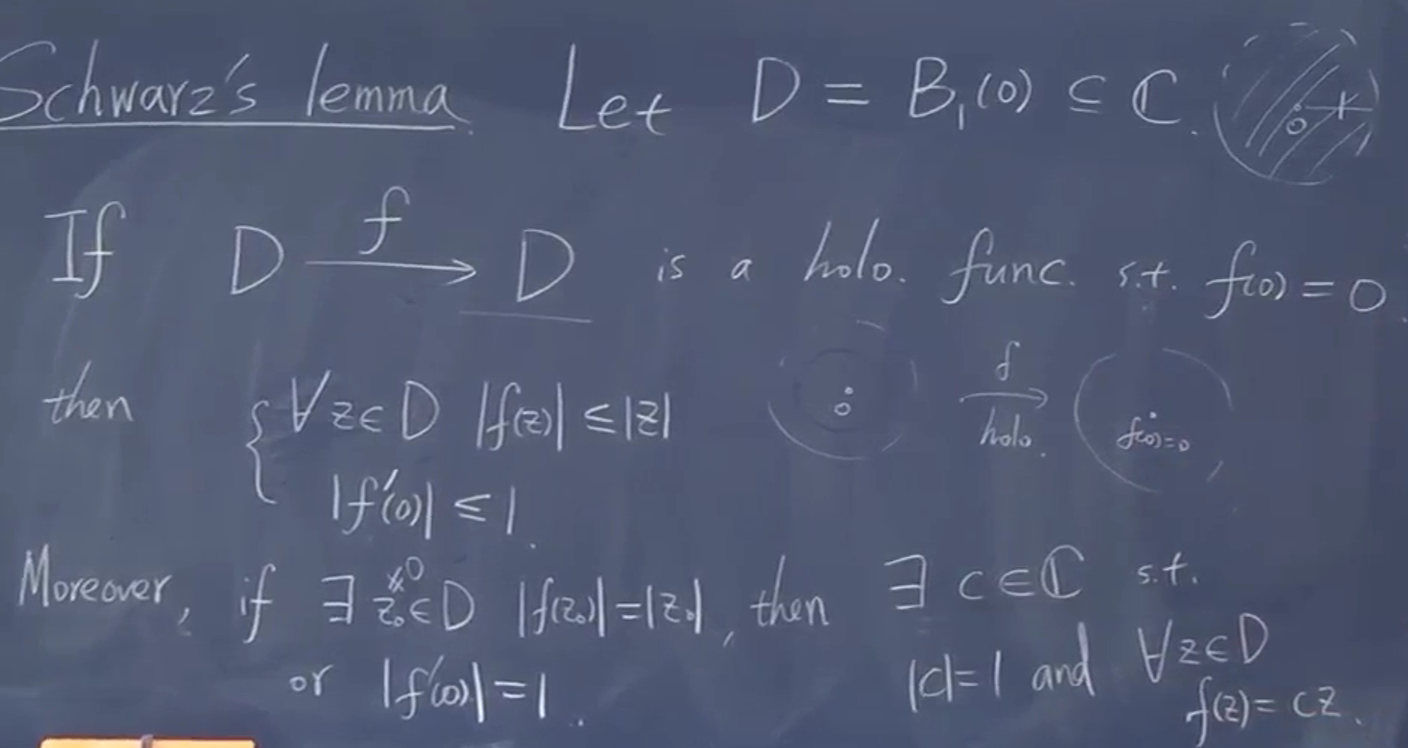 Schwarz's lemma. Let D = B₁(0) ⊆ ℂ.
0
If D →f D is a holo. func. s.t. f(0) = 0.
then { ∀ z∈D |f(z)| ≤ |z|
|f'(0)| ≤ 1.
0
f
holo.
f(0)=0
Moreover, if ∃ z₀≠0 ∈ D |f(z₀)| = |z₀|, then ∃ c∈ℂ s.t.
or |f'(0)| = 1.
|c| = 1 and ∀ z∈D
f(z) = cz.